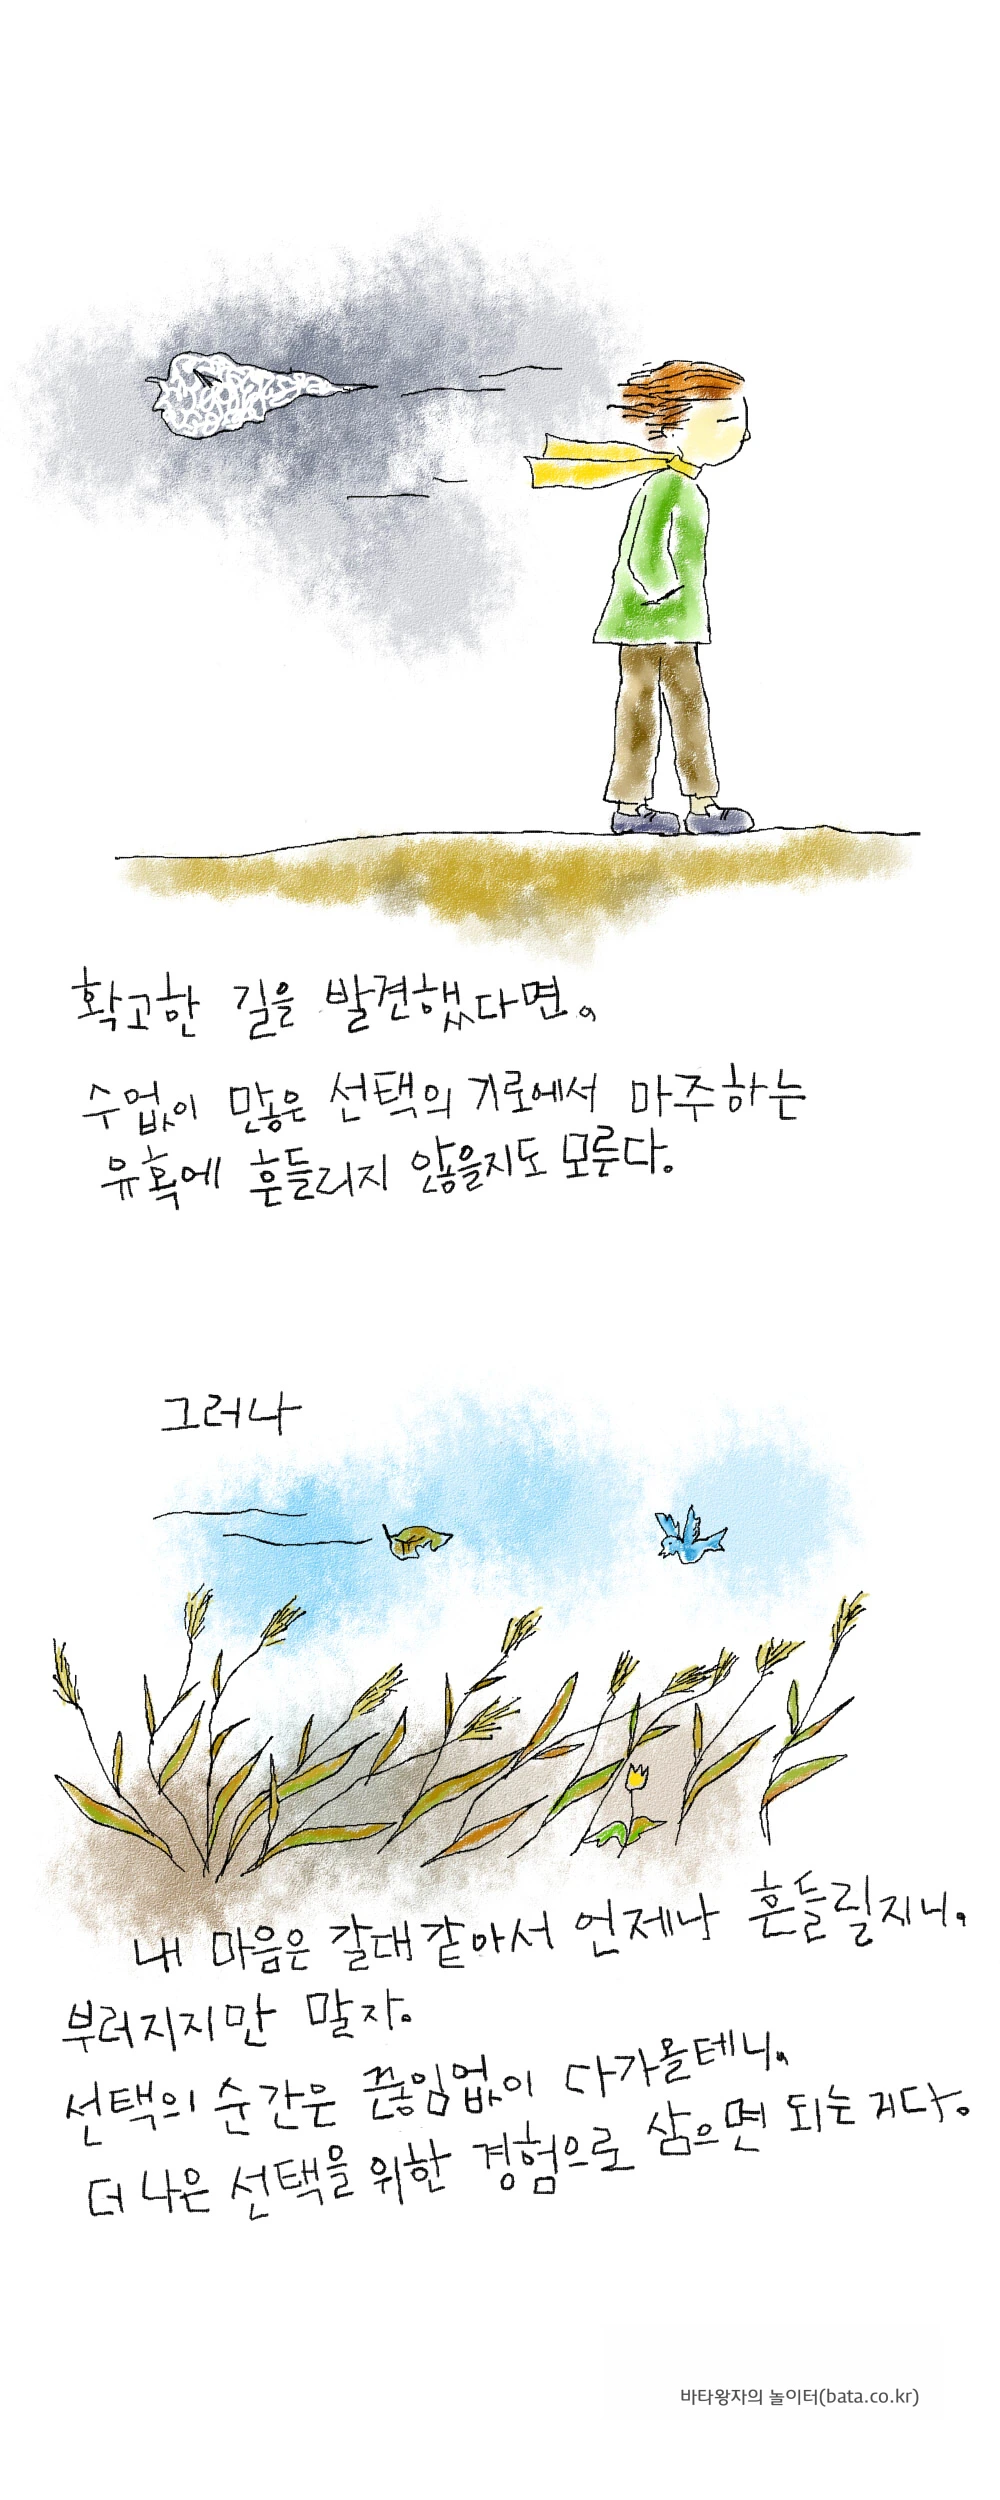 확고한 길을 발견했다면,
수없이 많은 선택의 기로에서 마주하는
유혹에 흔들리지 않을지도 모른다.
그러나
내 마음은 갈대 같아서 언제나 흔들릴지니,
부러지지만 말자.
선택의 순간은 끊임없이 다가올테니,
더 나은 선택을 위한 경험으로 삼으면 되는 거다.
바타왕자의 놀이터(bata.co.kr)